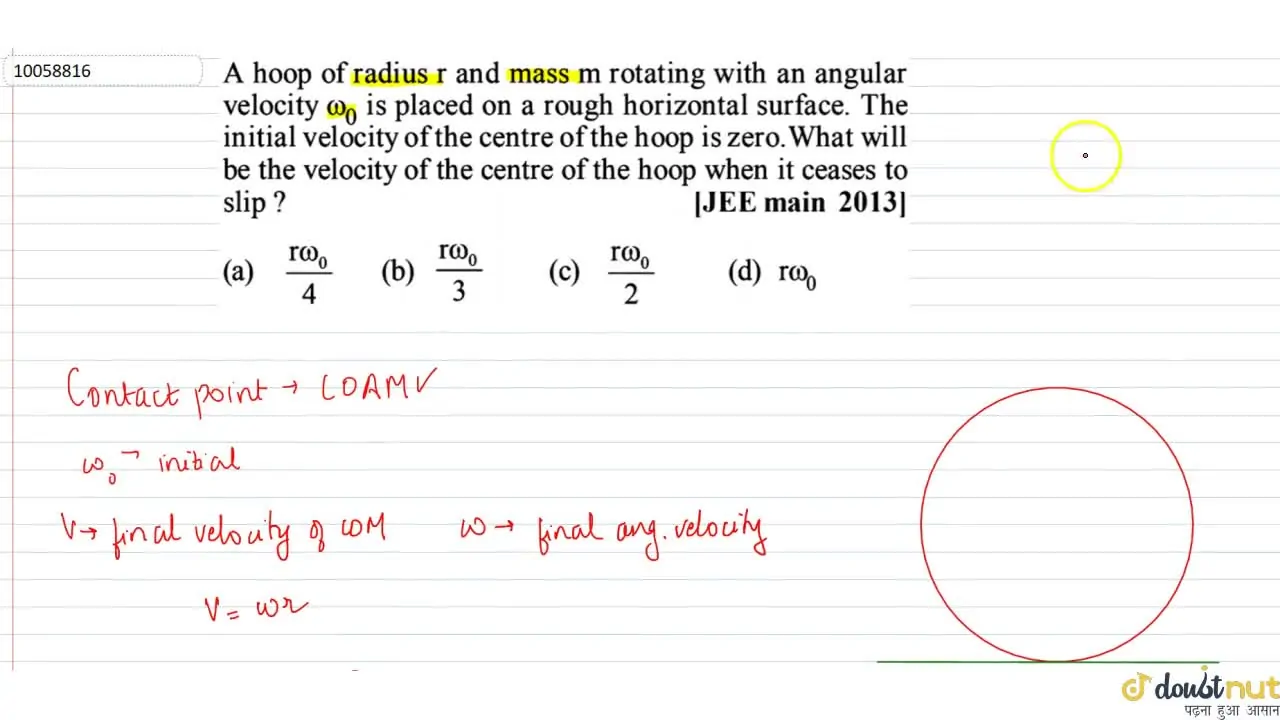 10058816
A hoop of radius r and mass m rotating with an angular
velocity ω₀ is placed on a rough horizontal surface. The
initial velocity of the centre of the hoop is zero. What will
be the velocity of the centre of the hoop when it ceases to
slip ? [JEE main 2013]
(a) rω₀/4 (b) rω₀/3 (c) rω₀/2 (d) rω₀
Contact point → COAM ✓
ω₀ → initial
V → final velocity of COM ω → final ang. velocity
V = ωr
doubtnut
पढ़ना हुआ आसान